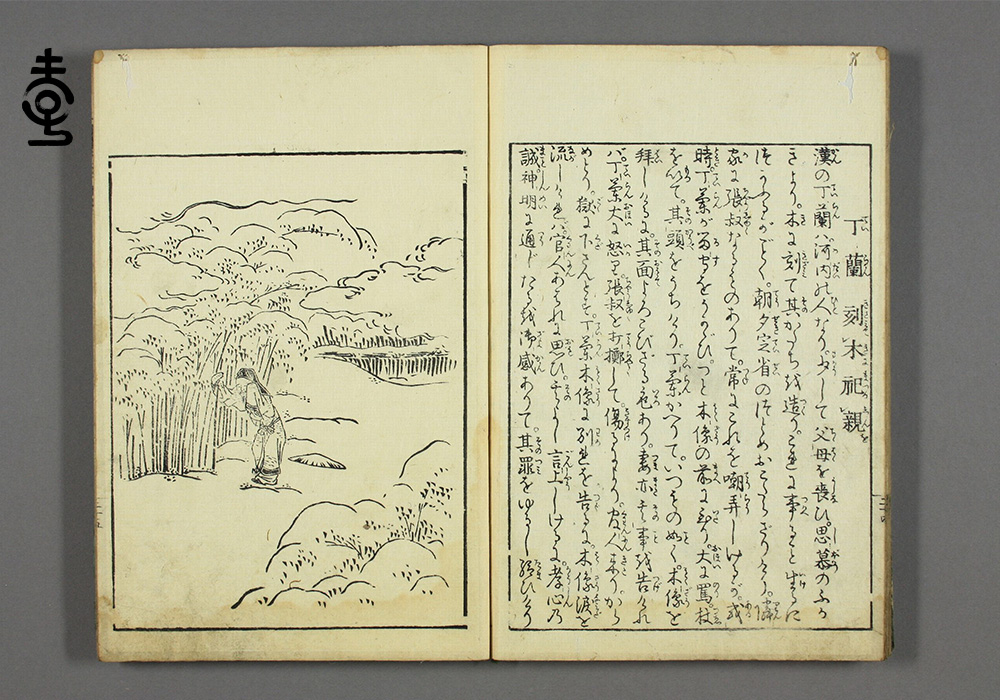 丁蘭刻木祀親
漢の丁蘭ハ河内の人なり。少して父母を喪ひ。思慕のふか
きより。木に刻て其かたちを造り。これに事ること生るに
つかふるがごとく。朝夕定省のつとめおこたらざりける。隣
家に張叔なるものありて。常にこれを嘲弄しけるが。或
時丁蘭が留守をうかゞひ。つと木像の前に到り。大に罵。杖
を以て。其頭をうちけり。丁蘭かへりて。いつものぬく。木像を
拝しけるに。其面よろこびざる色あり。妻亦其事を告けれ
バ。丁蘭大に怒り。張叔を打擲して。傷るにより。官人来りから
めとり。獄に下さんとす。丁蘭木像に別れを告るに。木像涙を
流しければ。官人あはれに思ひ。其よし言上しけるに孝心乃
誠神明に通じたるを御感ありて。其罪をゆるし給ひけり